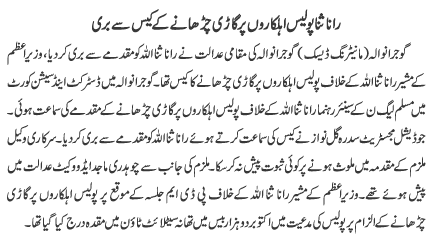 رانا ثنا پولیس اہلکاروں پر گاڑی چڑھانے کے کیس سے بری
گوجرانوالہ (مانیٹرنگ ڈیسک) گوجرانوالہ کی مقامی عدالت نے رانا ثنا اللہ کو مقدمے سے بری کر دیا، وزیر اعظم
کے مشیر رانا ثنا اللہ کے خلاف پولیس اہلکاروں پر گاڑی چڑھانے کا کیس تھا۔ گوجرانوالہ میں ڈسٹرکٹ اینڈ سیشن کورٹ
میں مسلم لیگ ن کے سینئر رہنما رانا ثنا اللہ کے خلاف پولیس اہلکاروں پر گاڑی چڑھانے کے مقدمے کی سماعت ہوئی۔
جوڈیشل مجسٹریٹ سدرہ گل نواز نے کیس کی سماعت کرتے ہوئے رانا ثنا اللہ کو مقدمے سے بری کر دیا۔ سرکاری وکیل
ملزم کے مقدمہ میں ملوث ہونے پر کوئی ثبوت پیش نہ کر سکا۔ ملزم کی جانب سے چوہدری ماجد ایڈووکیٹ عدالت میں
پیش ہوئے تھے۔ وزیر اعظم کے مشیر رانا ثنا اللہ کے خلاف پی ڈی ایم جلسہ کے موقع پر پولیس اہلکاروں پر گاڑی
چڑھانے کے الزام پر پولیس کی مدعیت میں اکتوبر دو ہزار بیس میں تھانہ سیٹلائٹ ٹاؤن میں مقدمہ درج کیا گیا تھا۔